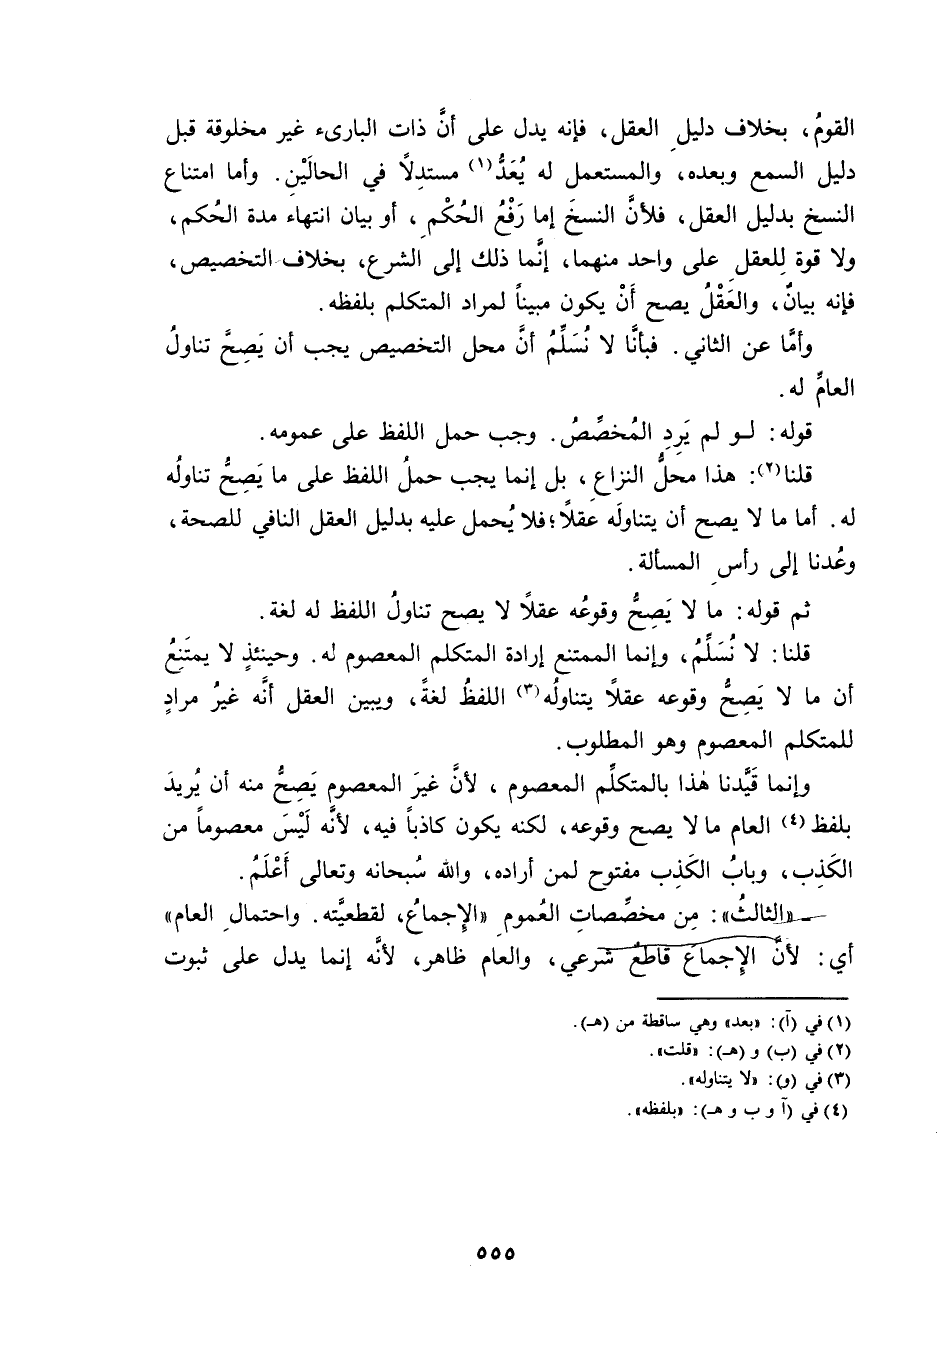 القومُ، بخلاف دليلِ العقل، فإنه يدل على أنَّ ذات البارىء غير مخلوقة قبل
دليل السمع وبعده، والمستعمل له يُعَدُّ(١) مستدلاً في الحالَيْن. وأما امتناع
النسخ بدليل العقل، فلأنَّ النسخَ إما رَفْعُ الحُكْمِ، أو بيان انتهاء مدة الحُكم،
ولا قوة لِلعقلِ على واحد منهما، إنَّما ذلك إلى الشرع، بخلاف التخصيص،
فإنه بيانٌ، والعَقْلُ يصح أَنْ يكون مبيناً لمراد المتكلم بلفظه.
وأمَّا عن الثاني. فبأنَّا لا نُسَلِّمُ أنَّ محل التخصيص يجب أن يَصِحَّ تناولُ
العامِّ له.
قوله: لـو لم يَرِدِ المُخصِّصُ. وجب حمل اللفظ على عمومه.
قلنا(٢): هذا محلُّ النزاعِ، بل إنما يجب حملُ اللفظ على ما يَصِحُّ تناولُه
له. أما ما لا يصح أن يتناولَه عقلاً؛ فلا يُحمل عليه بدليل العقل النافي للصحة،
وعُدنا إلى رأسِ المسألة.
ثم قوله: ما لا يَصِحُّ وقوعُه عقلاً لا يصح تناولُ اللفظ له لغة.
قلنا: لا نُسَلِّمُ، وإنما الممتنع إرادة المتكلم المعصوم له. وحينئذٍ لا يمتَنِعُ
أن ما لا يَصِحُّ وقوعه عقلاً يتناولُه(٣) اللفظُ لغةً، ويبين العقل أنَّه غيرُ مرادٍ
للمتكلم المعصوم وهو المطلوب.
وإنما قَيَّدنا هٰذا بالمتكلِّم المعصوم، لأنَّ غيرَ المعصومِ يَصِحُّ منه أن يُريدَ
بلفظ(٤) العام ما لا يصح وقوعه، لكنه يكون كاذباً فيه، لأنَّه لَيْسَ معصوماً من
الكَذِب، وبابُ الكَذِب مفتوح لمن أراده، والله سُبحانه وتعالى أَعْلَمُ.
«الثالثُ»: مِن مخصِّصاتِ العُمومِ «الإِجماعُ، لقطعيَّته. واحتمالِ العام»
أي: لأنَّ الإِجماعَ قاطعٌ شرعي، والعام ظاهر، لأنَّه إنما يدل على ثبوت
(١) في (آ): «بعد» وهي ساقطة من (هـ).
(٢) في (ب) و (هـ): «قلت».
(٣) في (و): «لا يتناوله».
(٤) في (آ و ب و هـ): «بلفظه».
٥٥٥